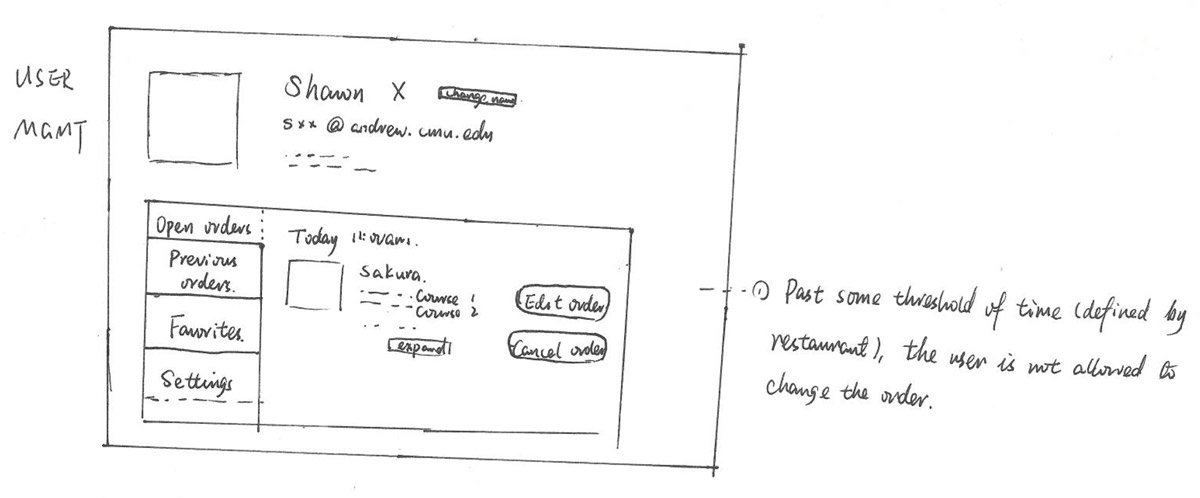 USER
MGMT
Shawn X
change name
sxx @ andrew.cmu.edu
Open orders
Previous
orders.
Favorites.
Settings
Today 11:00am.
Sakura.
Course 1
Course 2
expand
Edit order
Cancel order
① Past some threshold of time (defined by
restaurant), the user is not allowed to
change the order.